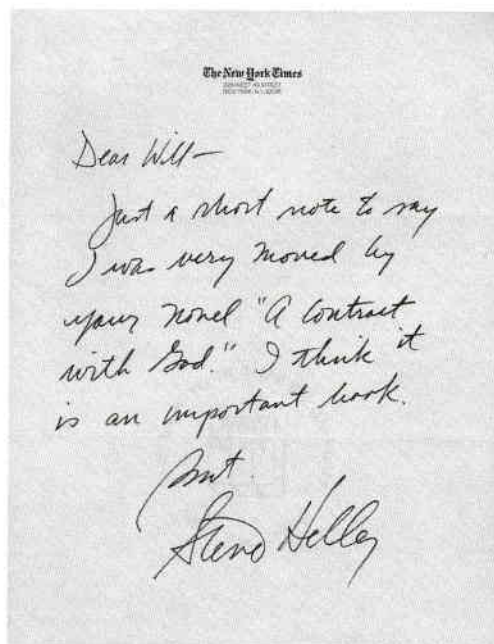 The New York Times
229 WEST 43 STREET
NEW YORK, N.Y. 10036
Dear Will—
Just a short note to say
I was very moved by
your novel "A Contract
with God." I think it
is an important book.
Best
Steve Heller